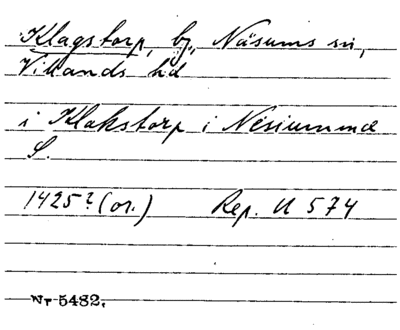 Klagstorp, by, Näsums sn,
Villands hd
i Klakstorp i Nesiummæ
S.
1425? (or.) Rep. N 574
Nr 5482.